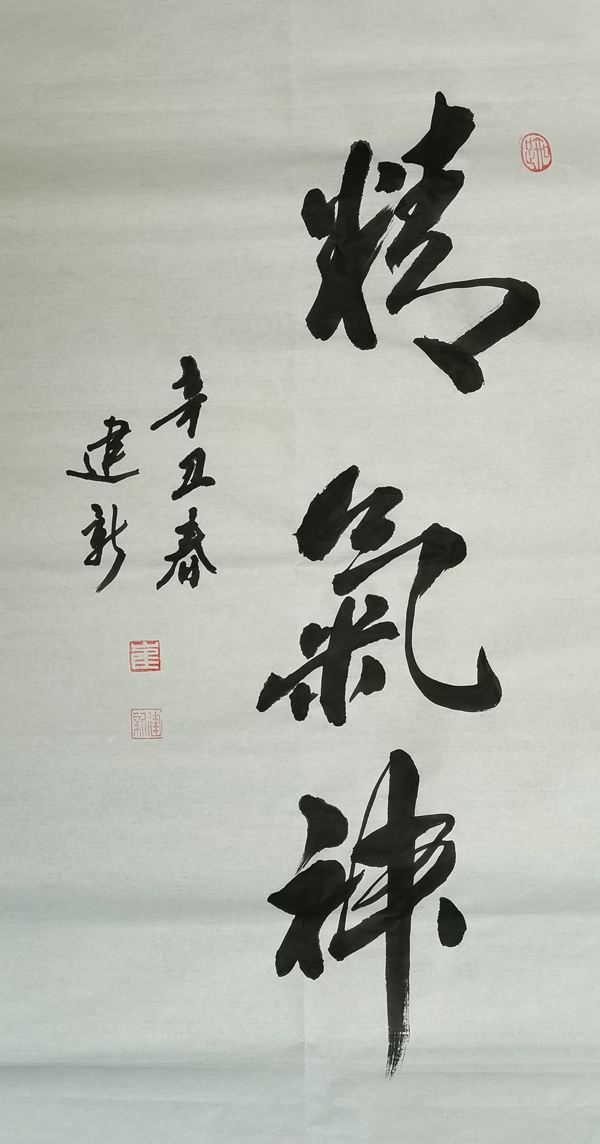 精氣神
辛丑春
建新
建新